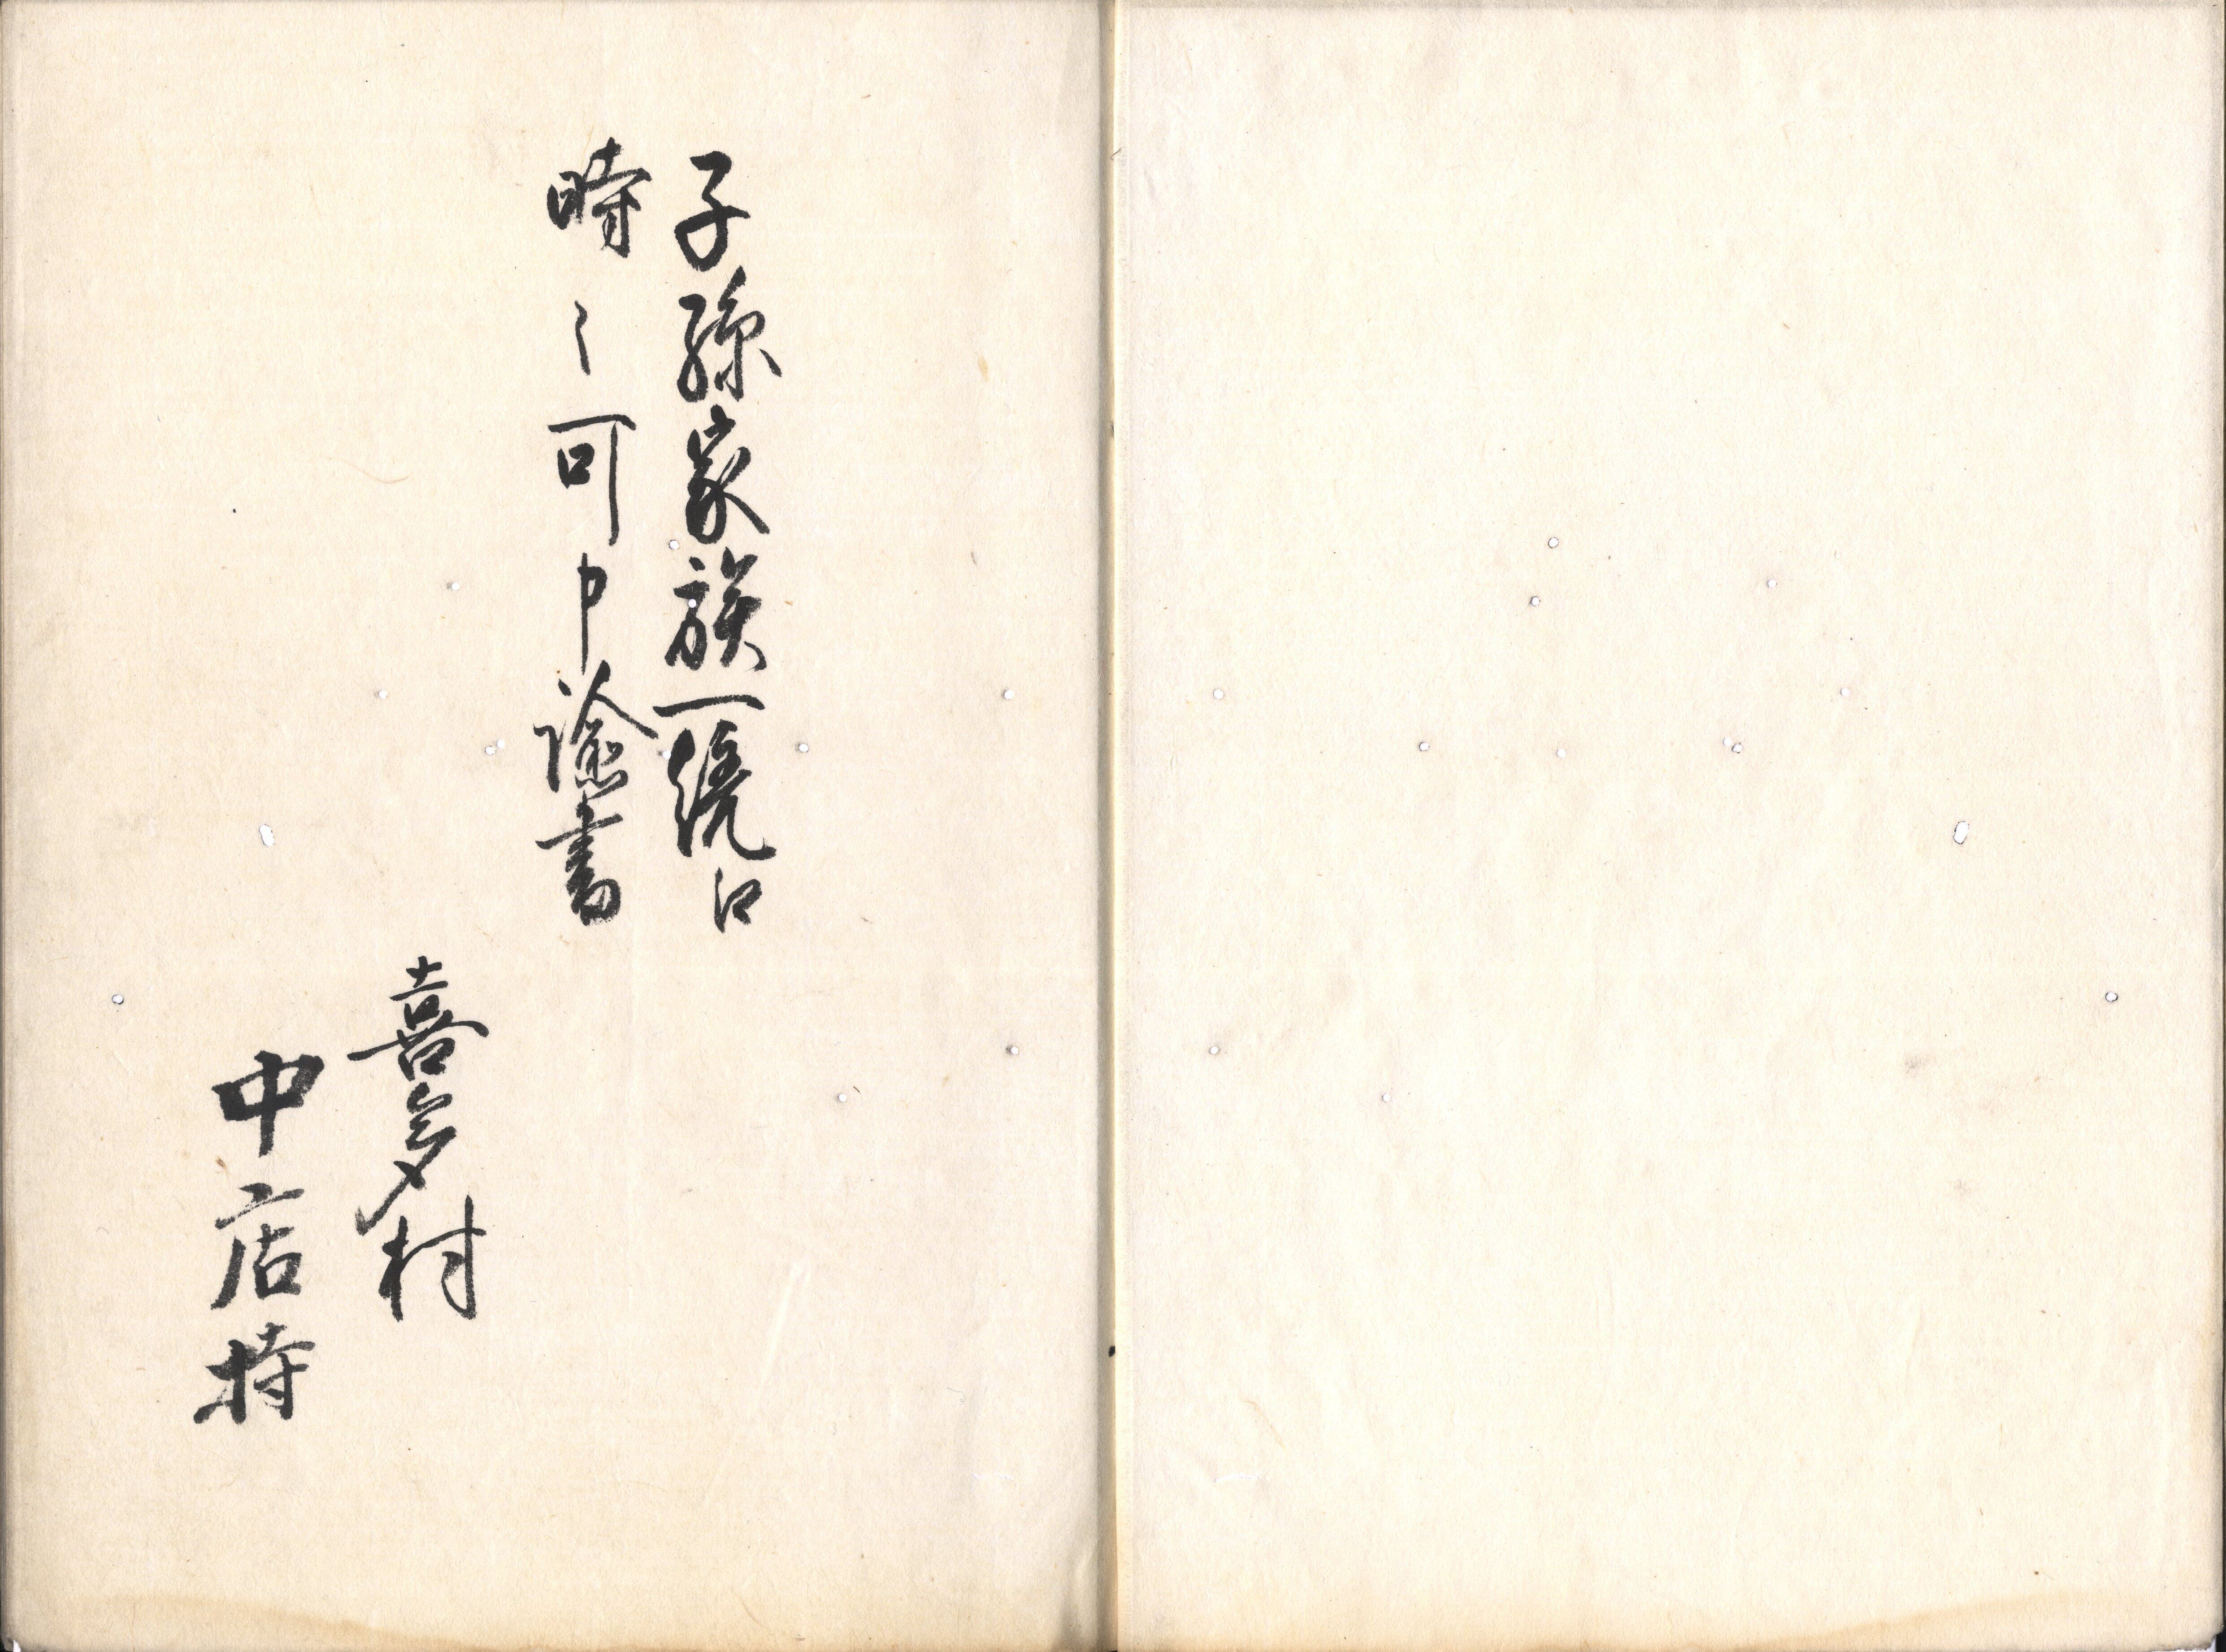 子孫家族一統江
時〻可申諭書
喜多村
中店持